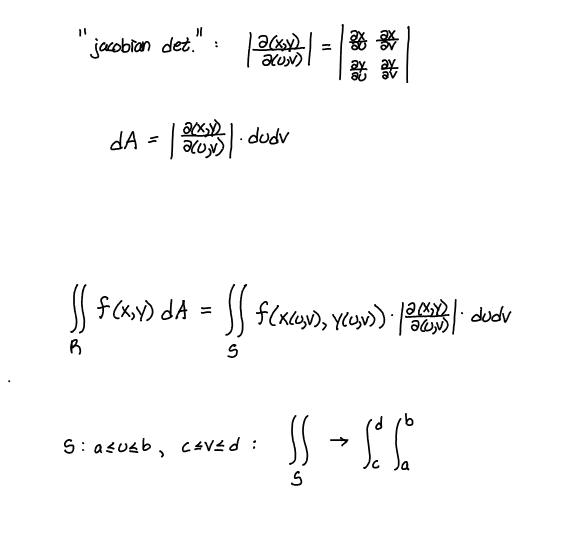 "jacobian det." : |∂(x,y)/∂(u,v)| = |∂x/∂u ∂x/∂v ; ∂y/∂u ∂y/∂v|
dA = |∂(x,y)/∂(u,v)| · dudv
∬_R f(x,y) dA = ∬_S f(x(u,v), y(u,v)) · |∂(x,y)/∂(u,v)| · dudv
S: a≤u≤b, c≤v≤d : ∬_S → ∫_c^d ∫_a^b